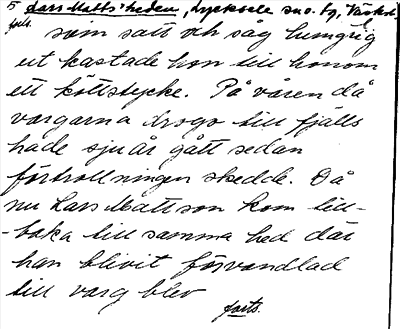 5 Lars Matts'heden, Lycksele sns. fg, Västerb.
forts.
som satt och såg hungrig
ut kastade hon till honom
ett köttstycke. På våren då
vargarna drogo till fjälls
hade sju år gått sedan
förtrollningen skedde. Då
nu Lars Mattsson kom till-
-baka till samma hed där
han blivit förvandlad
till varg blev
forts.